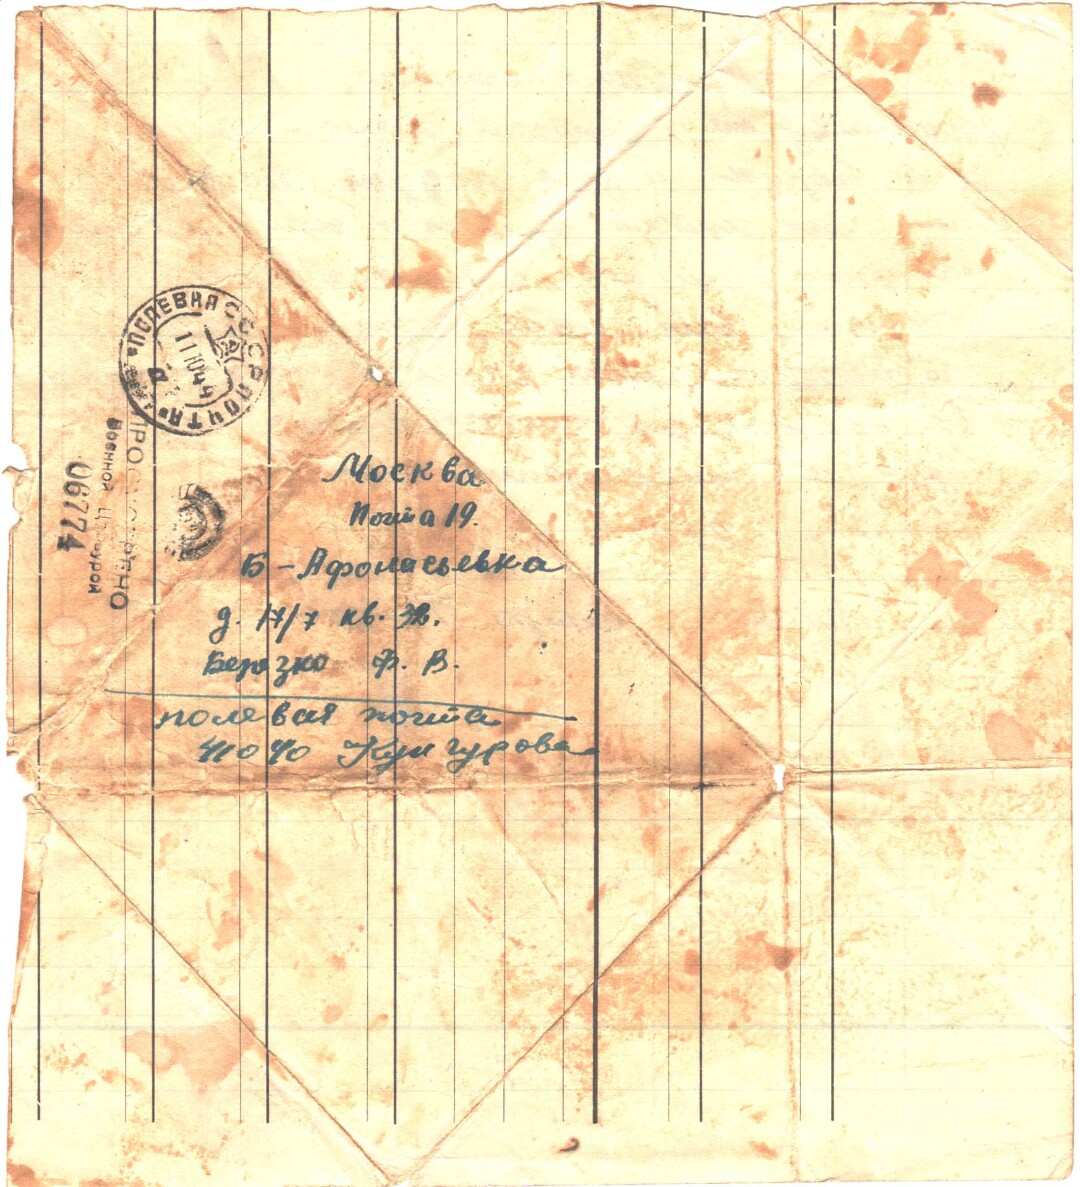 ПОЛЕВАЯ ПОЧТА СССР
11 10 44
ПРОСМОТРЕНО
Военной Цензурой
06774
Москва
Почта 19.
Б-Афонасьевка
д. 17/7 кв. 32.
Березко Ф. В.
полевая почта
41040 Кунгурова